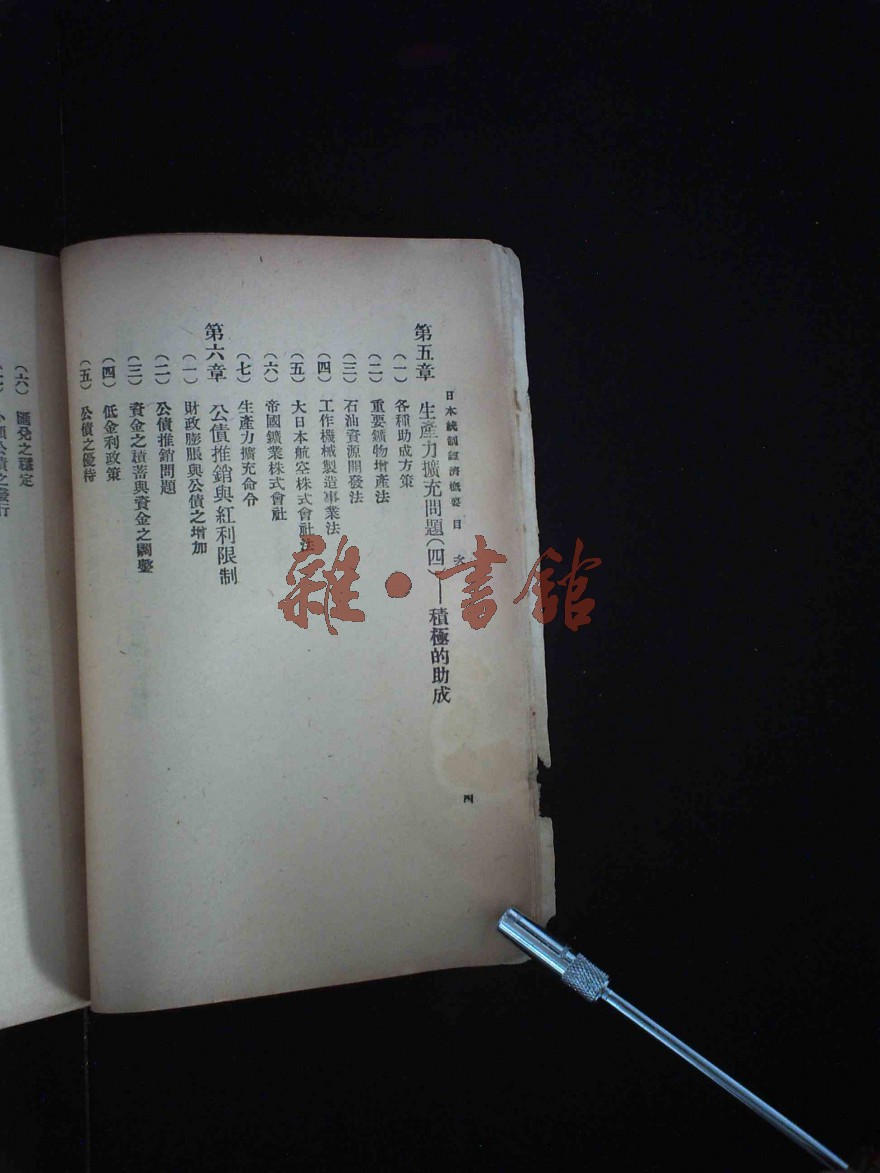 日本統制經濟概要 目 次
第五章 生產力擴充問題(四)——積極的助成
(一) 各種助成方策
(二) 重要鑛物增產法
(三) 石油資源開發法
(四) 工作機械製造事業法
(五) 大日本航空株式會社法
(六) 帝國鑛業株式會社
(七) 生產力擴充命令
第六章 公債推銷與紅利限制
(一) 財政膨脹與公債之增加
(二) 公債推銷問題
(三) 資金之積蓄與資金之調整
(四) 低金利政策
(五) 公債之優待
四
(六) 匯兌之穩定
公債之發行
雜·書館